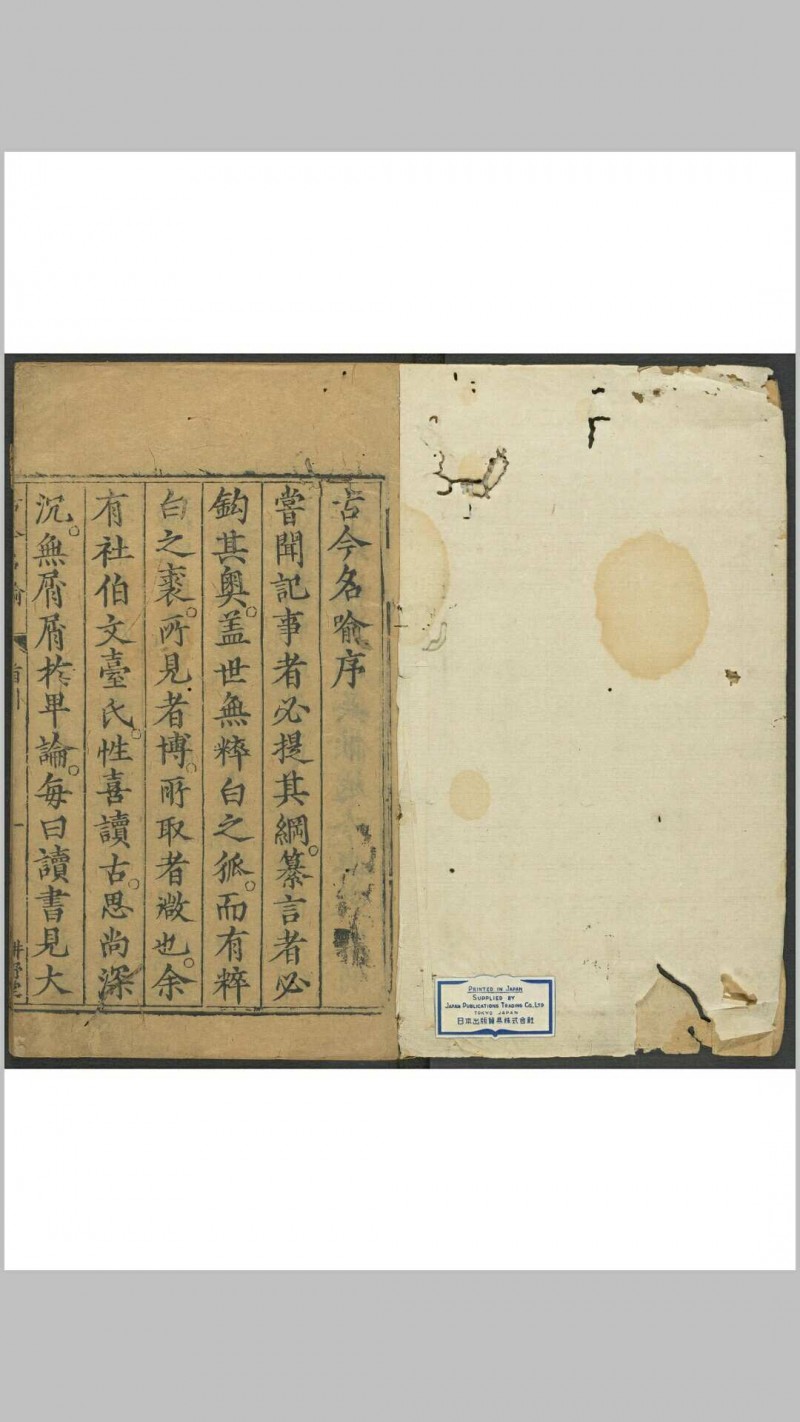 古今名喻序
嘗聞記事者必提其綱。纂言者必
鈎其奥。盖世無粹白之狐。而有粹
白之裘。所見者博。所取者微也。余
有社伯文臺氏。性喜讀古。思尚深
沉。無屑屑扵卑論。每曰讀書見大
PRINTED IN JAPAN
SUPPLIED BY
JAPAN PUBLICATIONS TRADING CO., LTD
TOKYO JAPAN
日本出版貿易株式会社